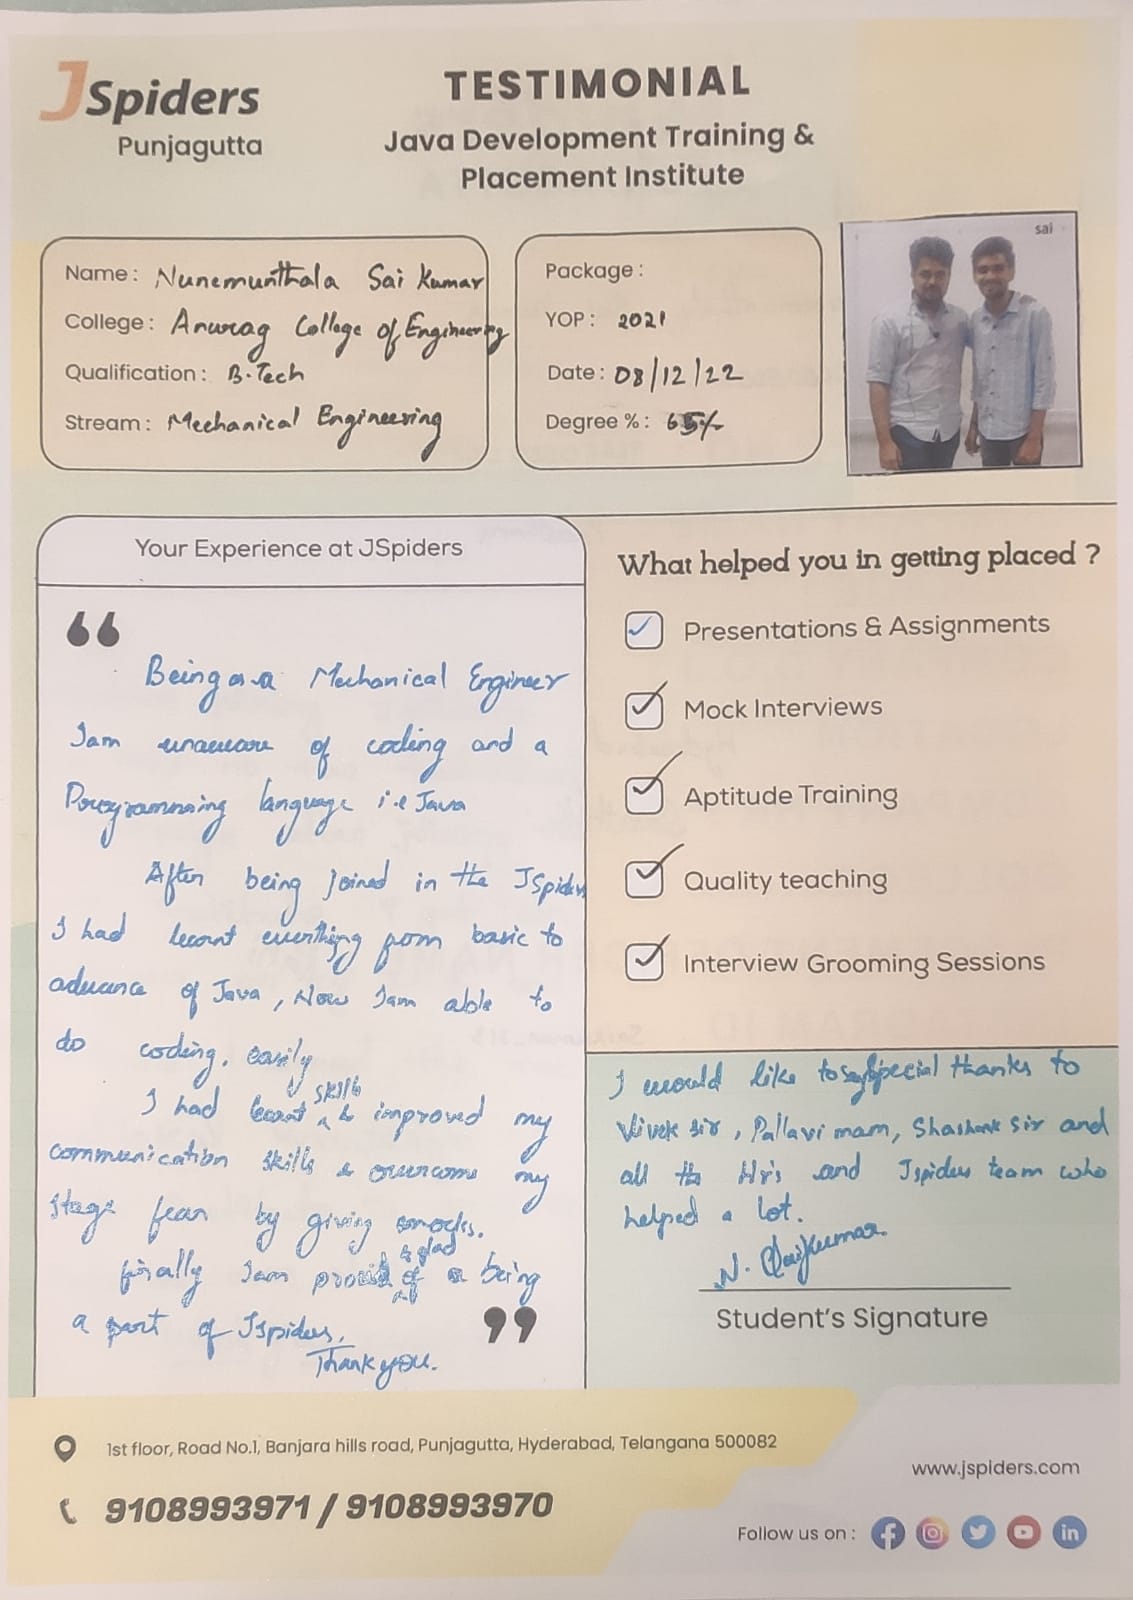 JSpiders
Punjagutta
TESTIMONIAL
Java Development Training &
Placement Institute
Name : Nunemunthala Sai Kumar
College : Anurag College of Engineering
Qualification : B.Tech
Stream : Mechanical Engineering
Package :
YOP : 2021
Date : 08/12/22
Degree % : 65%
sai
Your Experience at JSpiders
“
Being a Mechanical Engineer
I am unaware of coding and a
Programming language i.e Java
After being joined in the JSpiders
I had learnt everthing from basic to
advance of Java, Now I am able to
do coding. easily
I had learnt skills & improved my
communication skills & overcome my
stage fear by giving mocks.
finally I am proud & glad of a being
a part of Jspiders.
Thank you.
”
What helped you in getting placed ?
Presentations & Assignments
Mock Interviews
Aptitude Training
Quality teaching
Interview Grooming Sessions
I would like to say Special thanks to
Vivek sir, Pallavi mam, Shashank Sir and
all the Hr's and Jspiders team who
helped a lot.
N. Saikumar
Student's Signature
1st floor, Road No.1, Banjara hills road, Punjagutta, Hyderabad, Telangana 500082
9108993971 / 9108993970
www.jspiders.com
Follow us on :